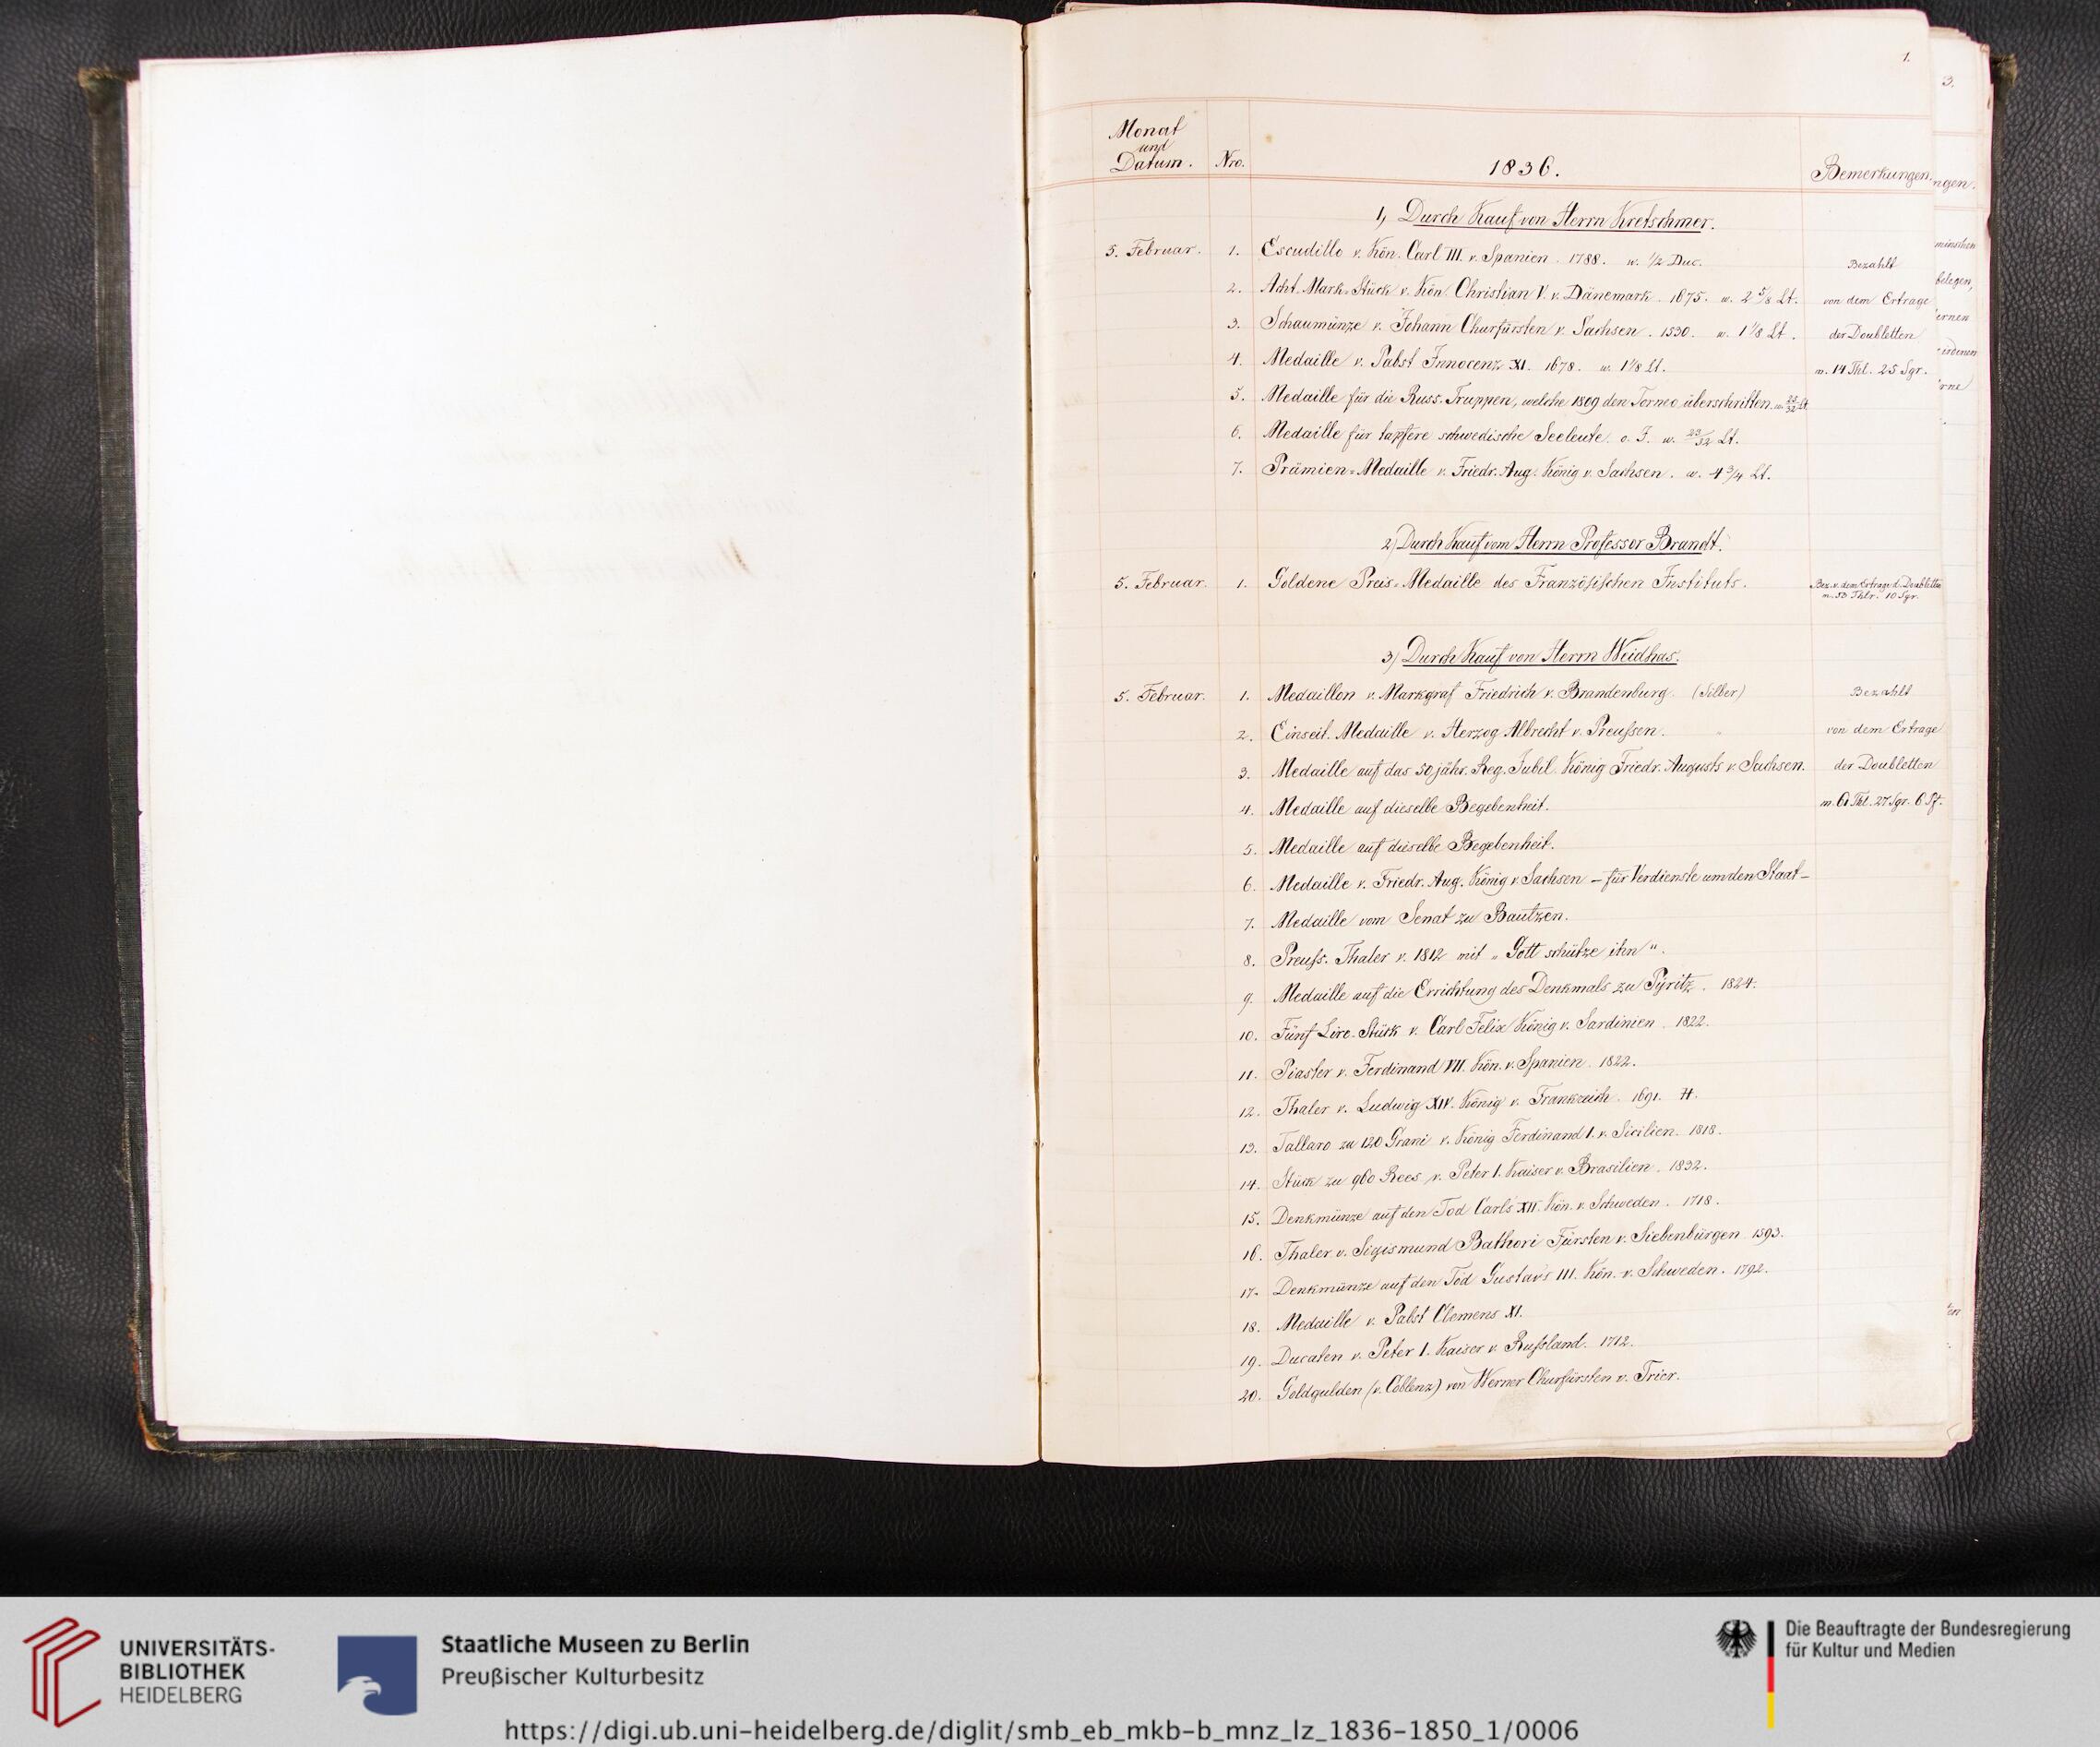 1.
3.
Monat
und
Datum.
Nro.
1836.
Bemerkungen.
ngen.
1, Durch Kauf von Herrn Kretschmer.
5. Februar. 1. Escudillo v. Kön. Carl III. v. Spanien. 1788. w. 1/2 Duc. Bezahlt
2. Acht-Mark-Stück v. Kön. Christian V. v. Dänemark. 1675. w. 2 5/8 Lt. von dem Ertrage
3. Schaumünze v. Johann Churfürsten v. Sachsen. 1530. w. 1 1/8 Lt. der Doubletten
4. Medaille v. Pabst Innocenz XI. 1678. w. 1 1/8 Lt. m. 14 Thl. 25 Sgr.
5. Medaille für die Russ. Truppen, welche 1809 den Torneo überschritten. w. 22/32 Lt.
6. Medaille für tapfere schwedische Seeleute. o. J. w. 23/32 Lt.
7. Prämien-Medaille v. Friedr. Aug. König v. Sachsen. w. 4 3/4 Lt.
2) Durch Kauf vom Herrn Professor Brandt.
5. Februar. 1. Goldene Preis-Medaille des Französischen Instituts. Bez. v. dem Ertrage d. Doubletten
m. 53 Thlr. 10 Sgr.
3) Durch Kauf von Herrn Weidhas.
5. Februar. 1. Medaillon v. Markgraf Friedrich v. Brandenburg. (Silber) Bezahlt
2. Einseit. Medaille v. Herzog Albrecht v. Preußen. von dem Ertrage
3. Medaille auf das 50 jähr. Reg. Jubil. König Friedr. Augusts v. Sachsen. der Doubletten
4. Medaille auf dieselbe Begebenheit. m. 61 Thl. 27 Sgr. 6 Pf.
5. Medaille auf dieselbe Begebenheit.
6. Medaille v. Friedr. Aug. König v. Sachsen – für Verdienste um den Staat –
7. Medaille vom Senat zu Bautzen.
8. Preuß. Thaler v. 1812 mit „Gott schütze ihn“.
9. Medaille auf die Errichtung des Denkmals zu Pyritz. 1824.
10. Fünf Lire-Stück v. Carl Felix König v. Sardinien. 1822.
11. Piaster v. Ferdinand VII. Kön. v. Spanien. 1822.
12. Thaler v. Ludwig XIV. König v. Frankreich. 1691. H.
13. Tallaro zu 120 Grani v. König Ferdinand I. v. Sicilien. 1818.
14. Stück zu 960 Rees v. Peter I. Kaiser v. Brasilien. 1832.
15. Denkmünze auf den Tod Carls XII. Kön. v. Schweden. 1718.
16. Thaler v. Sigismund Bathori Fürsten v. Siebenbürgen 1593.
17. Denkmünze auf den Tod Gustavs III. Kön. v. Schweden. 1792.
18. Medaille v. Pabst Clemens XI.
19. Ducaten v. Peter I. Kaiser v. Rußland. 1712.
20. Goldgulden (v. Coblenz) von Werner Churfürsten v. Trier.
UNIVERSITÄTS-
BIBLIOTHEK
HEIDELBERG
Staatliche Museen zu Berlin
Preußischer Kulturbesitz
Die Beauftragte der Bundesregierung
für Kultur und Medien
https://digi.ub.uni-heidelberg.de/diglit/smb_eb_mkb-b_mnz_lz_1836-1850_1/0006